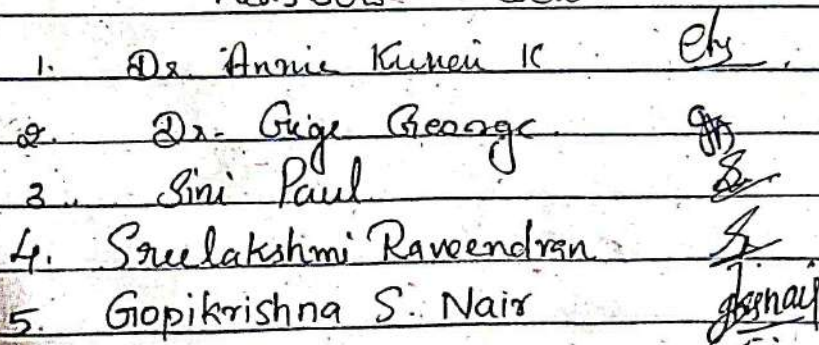 1. Dr. Annie Kurian K
2. Dr. Gige George
3. Sini Paul
4. Sreelakshmi Raveendran
5. Gopikrishna S. Nair